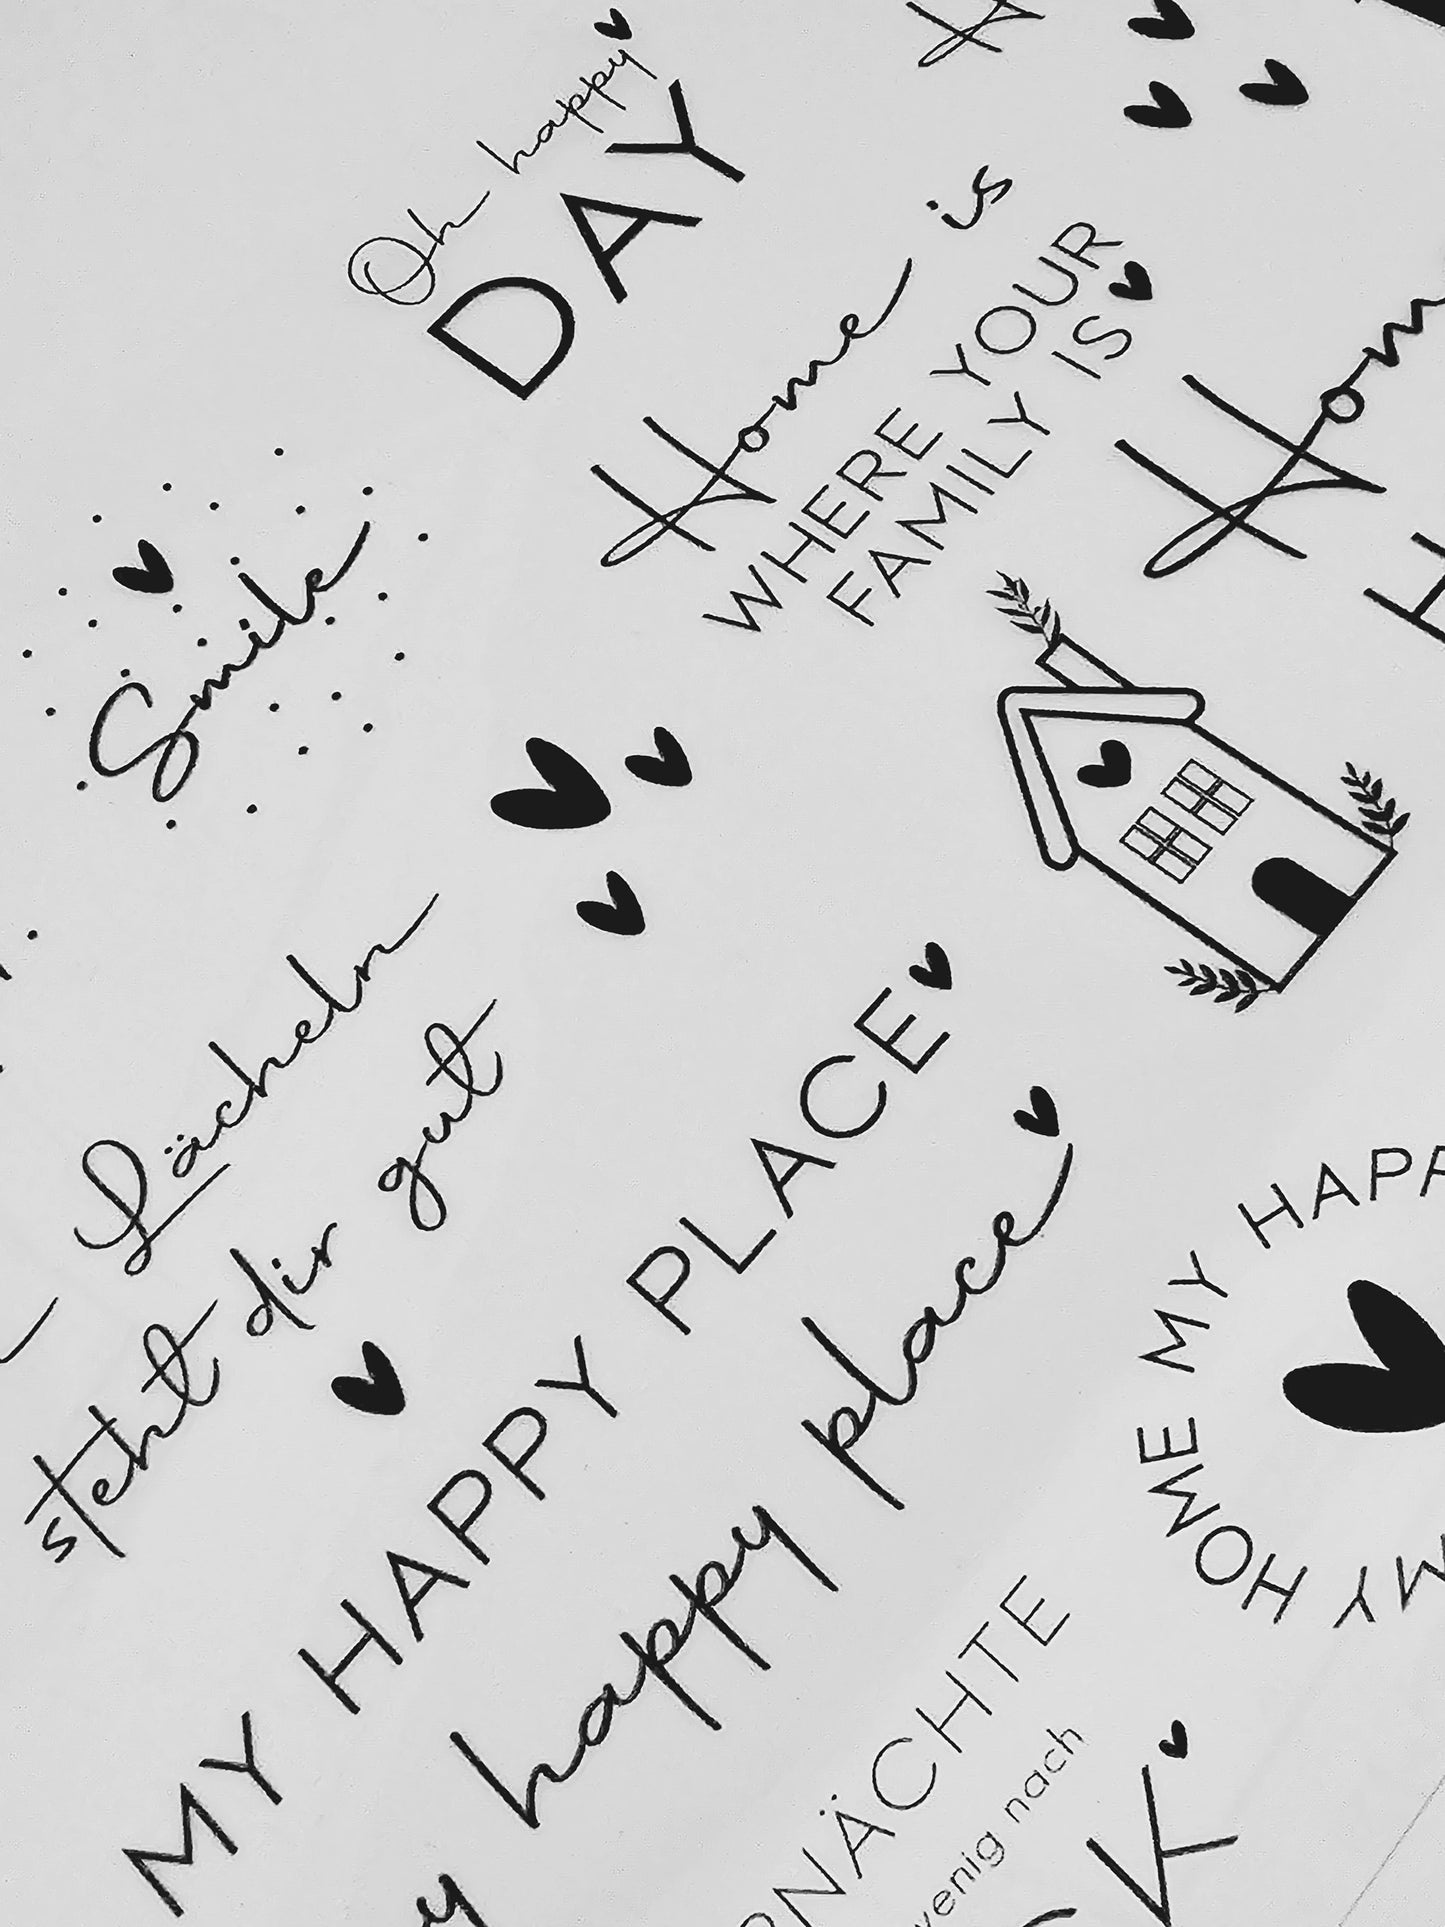 Oh happy
DAY
Home is
WHERE YOUR
FAMILY IS
Smile
Lächeln
steht dir gut
MY HAPPY PLACE
happy place
HOME MY HAPP
MY
NÄCHTE
wenig nach
K